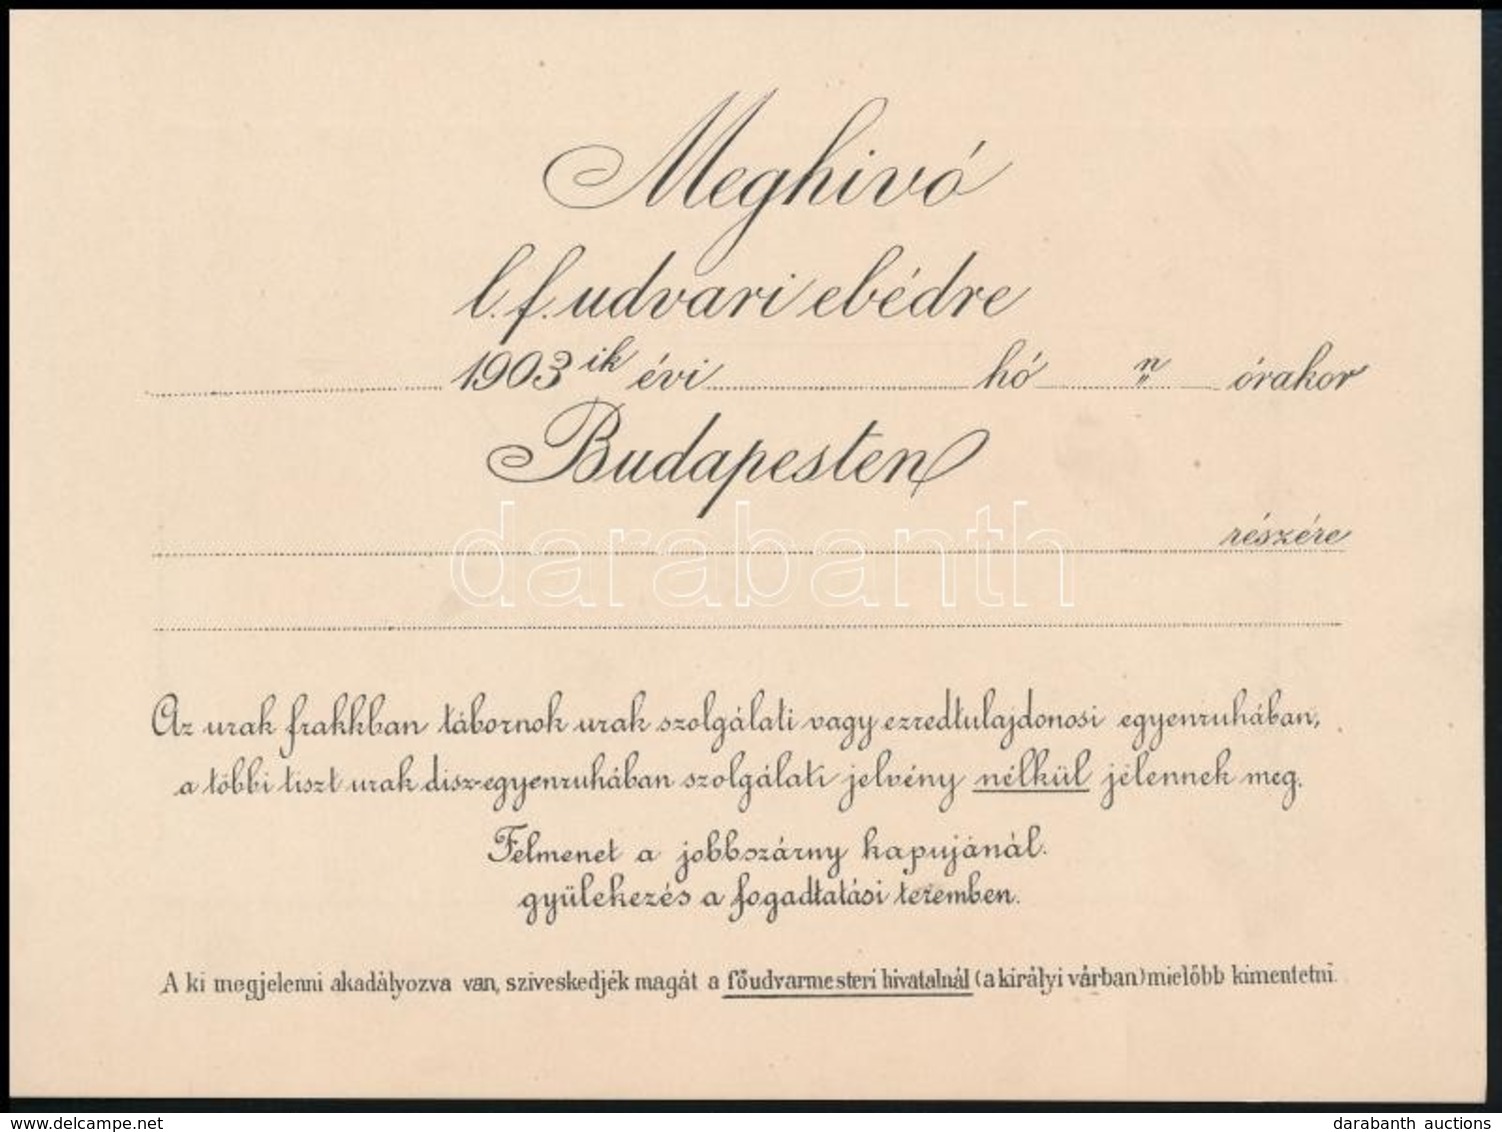 Meghivó
l. f. udvari ebédre
1903 ik évi hó n órakor
Budapesten
részére
darabanth
Az urak frakkban tábornok urak szolgálati vagy ezredtulajdonosi egyenruhában,
a többi tiszt urak disz-egyenruhában szolgálati jelvény nélkül jelennek meg.
Felmenet a jobbszárny kapujánál.
gyülekezés a fogadtatási teremben.
A ki megjelenni akadályozva van, sziveskedjék magát a főudvarmesteri hivatalnál (a királyi várban) mielőbb kimentetni.
delcampe.net
darabanth auctions